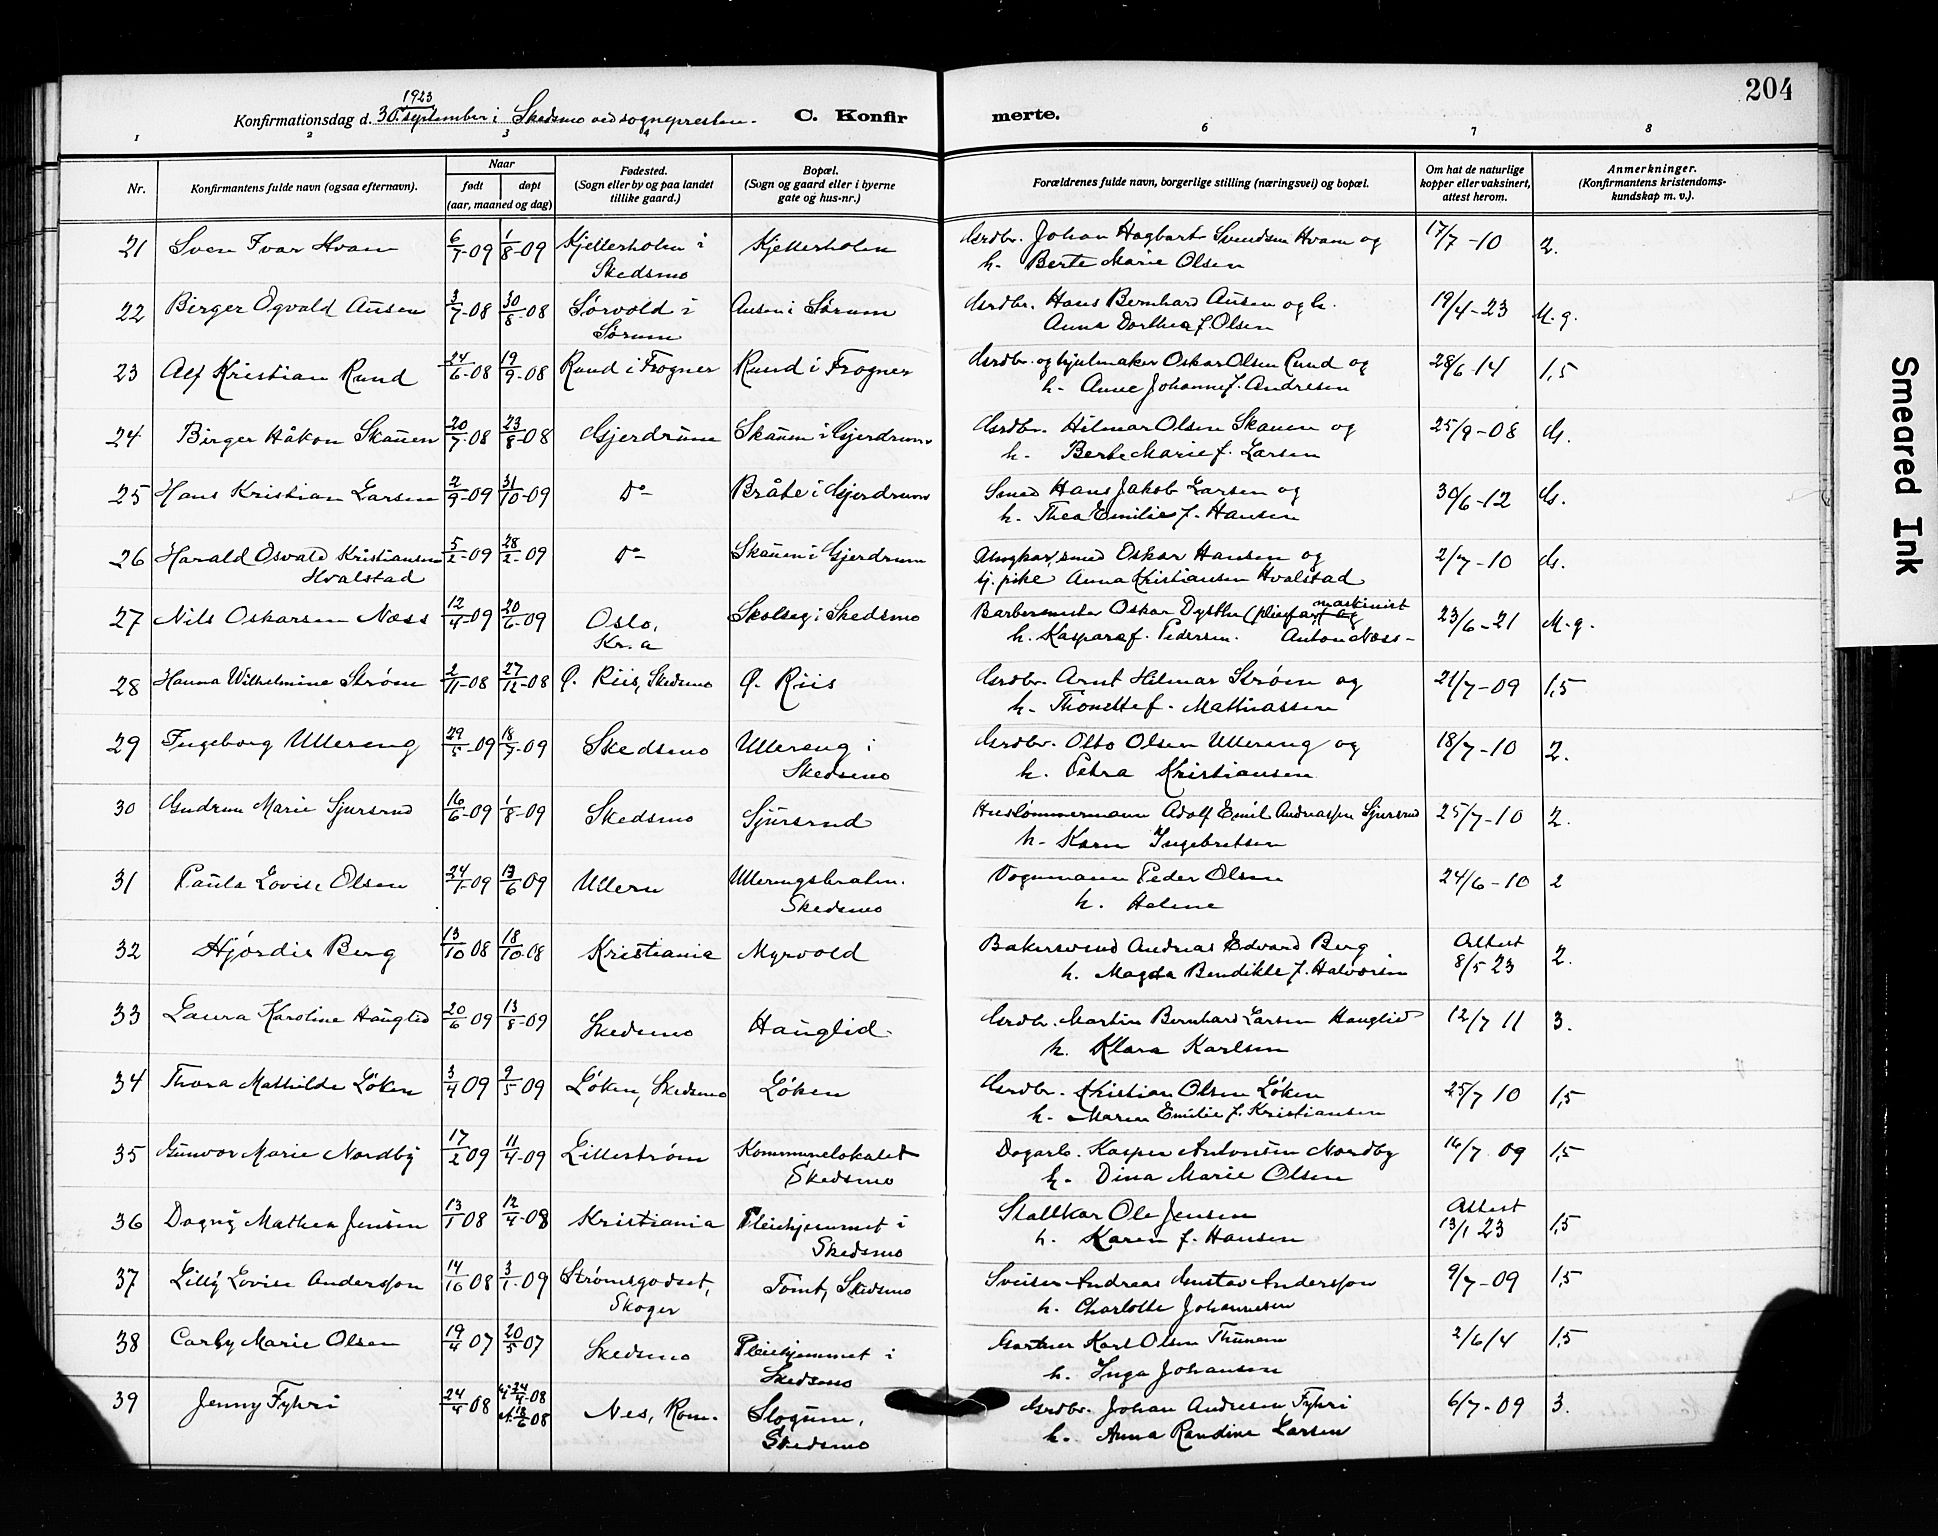 204
Konfirmationsdag d. 30. september 1923 i Skedsmo ved sognepresten. C. Konfirmerte.
1 2 3 4 6 7 8
Nr. Konfirmantens fulde navn (ogsaa efternavn). Naar født døpt (aar, maaned og dag) Fødested. (Sogn eller by og paa landet tillike gaard.) Bopæl. (Sogn og gaard eller i byerne gate og hus-nr.) Forældrenes fulde navn, borgerlige stilling (næringsvei) og bopæl. Om hat de naturlige kopper eller vaksinert, attest herom. Anmerkninger. (Konfirmantens kristendomskundskap m. v.).
21 Sven Ivar Hvam 6/7-09 1/8-09 Kjellerholen i Kjellerholen Grdbr. Johan Hagbart Svendsen Hvam og 17/7-10 2.
Skedsmo h. Berte Marie Olsen
22 Birger Ogvald Ausen 3/7-08 30/8-08 Sørvold i Ausen i Sørum Grdbr. Hans Bernhard Ausen og h. 19/4-23 M.g.
Sørum Anna Dorthea f. Olsen
23 Alf Kristian Rund 24/6-08 19/9-08 Rund i Frogner Rund i Frogner Grdbr. og hjulmaker Oskar Olsen Rund og 28/6-14 1,5
h. Anne Johanne f. Andresen
24 Birger Håkon Skauen 20/7-08 23/8-08 Gjerdrum Skauen i Gjerdrum Grdbr. Hilmar Olsen Skauen og 25/9-08 G.
h. Berte Marie f. Larsen
25 Hans Kristian Larsen 2/9-09 31/10-09 Do Bråte i Gjerdrum Smed Hans Jakob Larsen og 30/6-12 G.
h. Thea Emilie f. Hansen
26 Harald Osvald Kristiansen 5/2-09 28/2-09 Do Skauen i Gjerdrum Ungkar, smed Oskar Hansen og 2/7-10 G.
Hvalstad tj. pike Anna Kristiansen Hvalstad
27 Nils Oskarsen Næss 12/4-09 20/6-09 Oslo, Skolseg i Skedsmo Barbermester Oskar Dysthe (pleiefar, maskinist 23/6-21 M.g.
Kr.a h. Kaspara f. Pedersen. Anton Næss-
28 Hanna Wilhelmine Strøm 2/11-08 27/12-08 Ø. Riis, Skedsmo Ø. Riis Grdbr. Arnt Hilmar Strøm og 21/7-09 1,5
h. Thonette f. Mathiassen
29 Ingeborg Ullereng 29/5-09 18/7-09 Skedsmo Ullereng i Grdbr. Otto Olsen Ullereng og 18/7-10 2.
Skedsmo h. Petra Kristiansen
30 Gudrun Marie Sjursrud 16/6-09 1/8-09 Skedsmo Sjursrud Hustømmermann Adolf Emil Andreassen Sjursrud 25/7-10 2.
h. Karen Ingebretsen
31 Paula Lovise Olsen 24/1-09 13/6-09 Ullern Ullerengsbraten. Vognmann Peder Olsen 24/6-10 2
Skedsmo h. Helene
32 Hjørdis Berg 13/10 08 18/10-08 Kristiania Myrvold Bakersvend Andreas Edvard Berg Attest 8/5 23 2.
h. Magda Bendikte f. Halvorsen
33 Laura Karoline Hauglid 20/6 09 13/8-09 Skedsmo Hauglid Grdbr. Martin Bernhard Larsen Hauglid 12/7 11 3.
h. Klara Karlsen
34 Thora Mathilde Løken 3/4 09 9/5 09 Løken, Skedsmo Løken Grdbr. Kristian Olsen Løken 25/7 10 1,5
h. Maren Emilie f. Kristiansen
35 Gunvor Marie Nordby 17/2 09 11/4-09 Lillestrøm Kommunelokalet Dagarb. Kasper Antonsen Nordby 16/7 09 1,5
Skedsmo h. Dina Marie Olsen
36 Dagny Mathea Jensen 13/1 08 12/4-08 Kristiania Pleiehjemmet i Stallkar Ole Jensen Attest 13/1 23 1,5
Skedsmo h. Karen f. Hansen
37 Lilly Lovise Andersson 14/10 08 3/1-09 Strømsgodset, Tomt, Skedsmo Sveiser Andreas Gustav Andersson 9/7-09 1,5
Skoger h. Charlotte Johannesen
38 Carly Marie Olsen 19/4 07 20/5 07 Skedsmo Pleiehjemmet i Gartner Karl Olsen Thunem 2/6 14 1,5
Skedsmo h. Inga Johansen
39 Jenny Fyhri 24/4 08 hj 24/4-08 Nes, Rom. Slogum, Grdbr. Johan Andresen Fyhri 6/7-09 3.
k. 13/6 08 Skedsmo h. Anna Randine Larsen
Smeared Ink